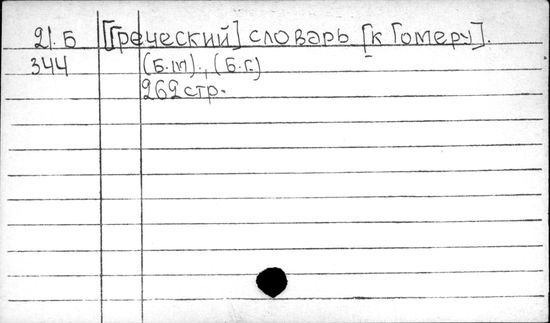 21.Б [Греческий] словарь [к Гомеру].
344 (Б.м)., (Б.г.)
262 стр.